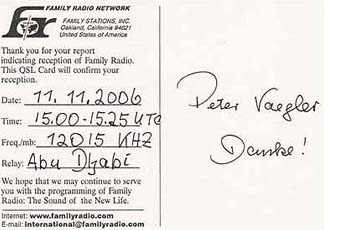 FAMILY RADIO NETWORK
FAMILY STATIONS, INC.
Oakland, California 94621
United States of America
Thank you for your report
indicating reception of Family Radio.
This QSL Card will confirm your
reception.
Date: 11.11.2006
Time: 15.00-15.25 UTC
Freq./mb: 12015 KHZ
Relay: Abu Dhabi
We hope that we may continue to serve
you with the programming of Family
Radio: The Sound of the New Life.
Internet: www.familyradio.com
E-mail: international@familyradio.com
Peter Vaegler
Danke!